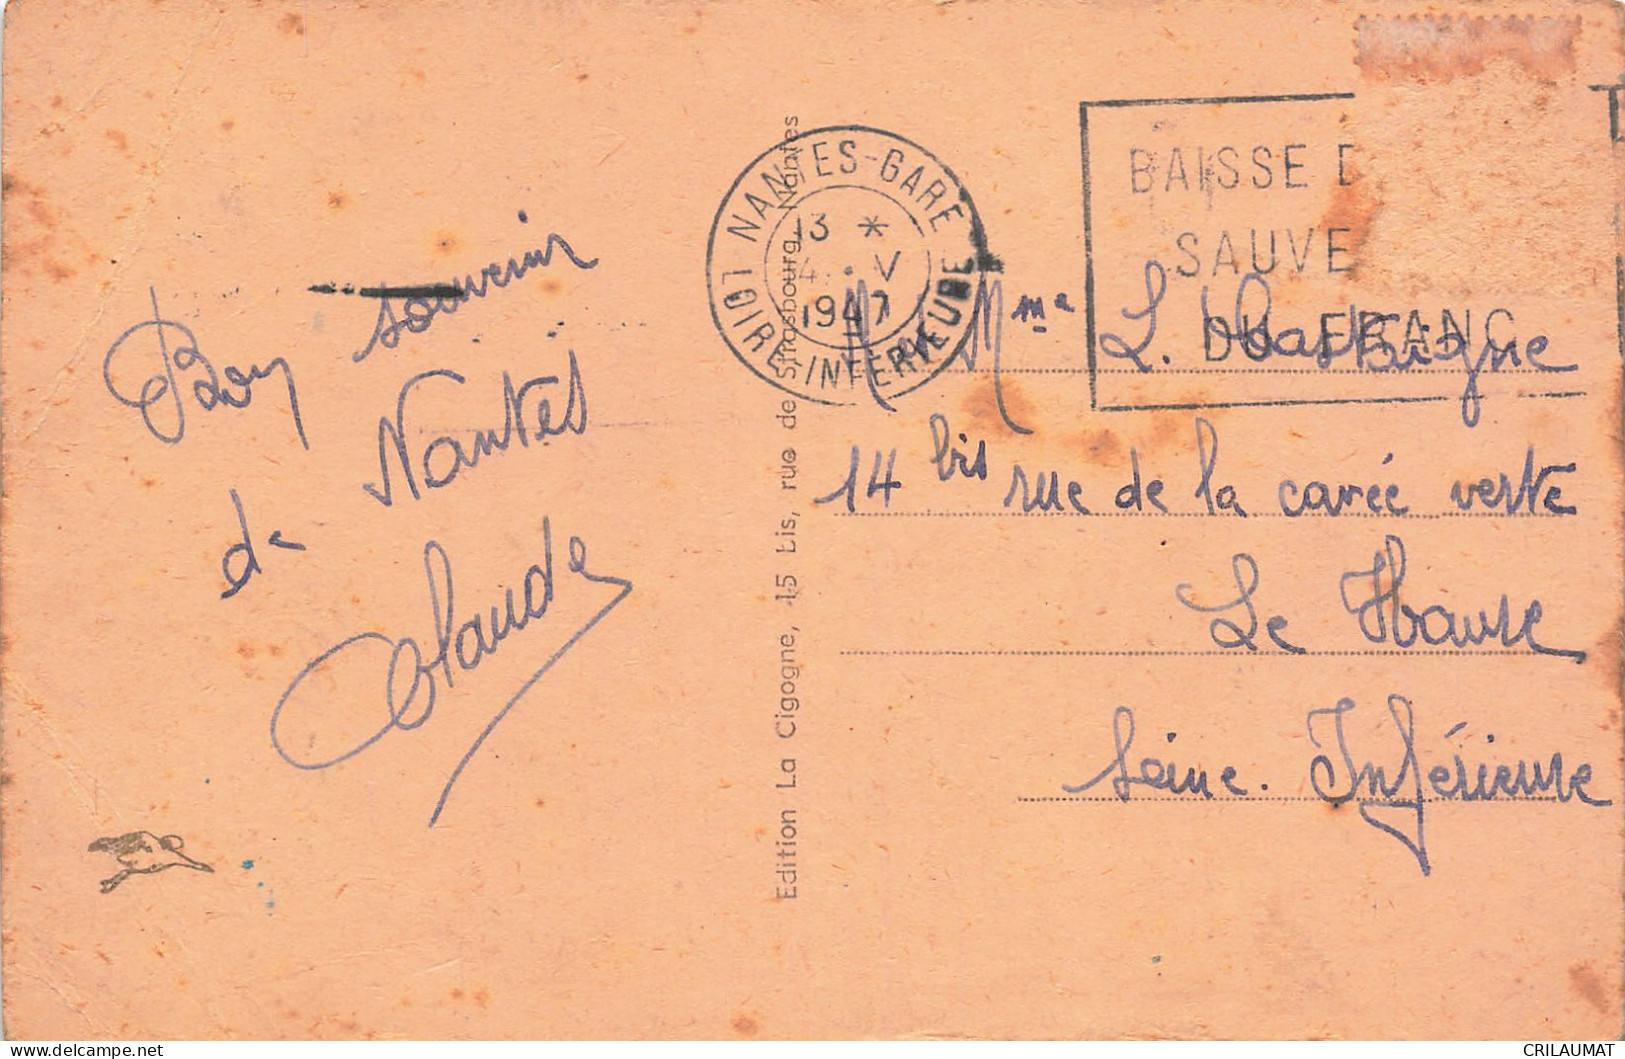 Bon souvenir
de Nantes
Claude
Edition La Cigogne, 15 bis, rue de Strasbourg, Nantes
NANTES-GARE
13 *
4 . V
1947
LOIRE-INFERIEURE
BAISSE D
SAUVE
DU FRANC
M. Mme L.
14 bis rue de la cavée verte
Le Havre
Seine. Inférieure
CRILAUMAT